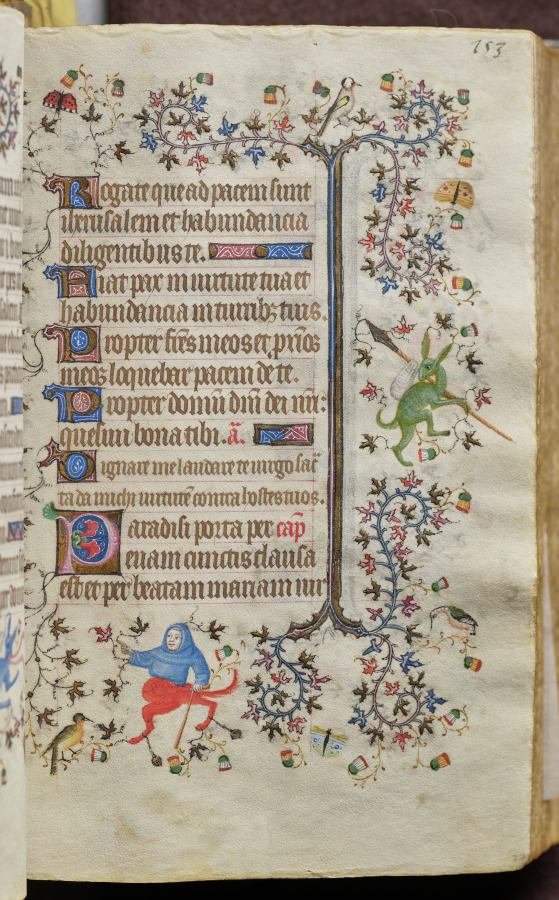 153
Rogate que ad pacem sunt
iherusalem et habundancia
diligentibus te.
Fiat pax in uirtute tua et
habundancia in turribꝫ tuis.
Propter fr̄es meos et pxīos
meos loquebar pacem de te.
Propter domū dn̄i dei nr̄i:
quesiui bona tibi. a͞.
Dignare me laudare te uirgo sac̄
ta da michi uirtutē contra hostes tuos.
Paradisi porta per cap̄
euam cunctis clausa
est et per beatam mariam uir